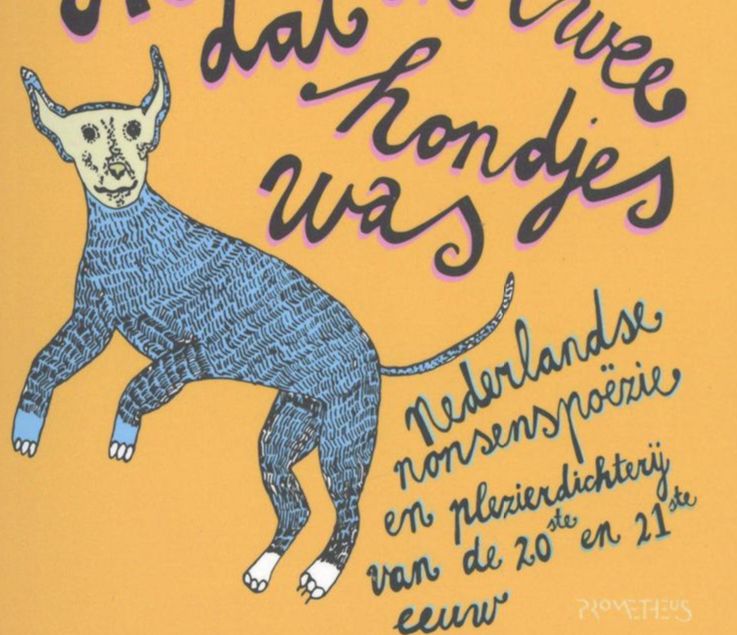 dat
twee
hondjes
was
Nederlandse
nonsenspoëzie
en plezierdichterij
van de 20ste en 21ste
eeuw
PROMETHEUS